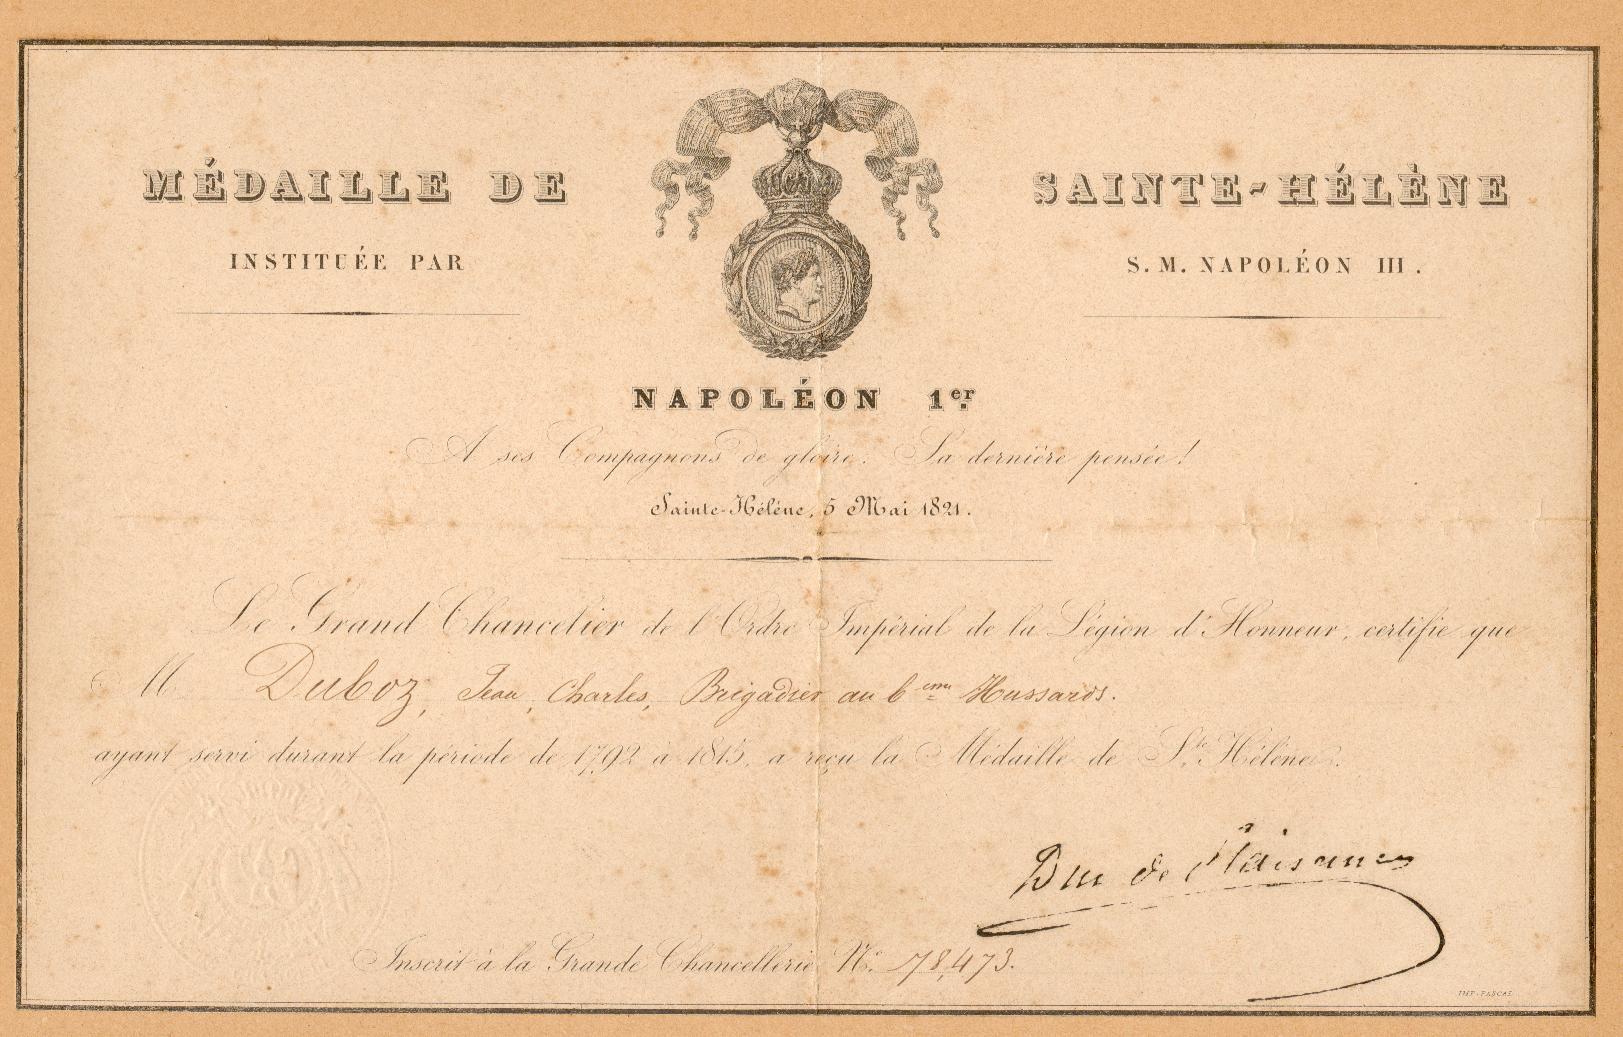 MÉDAILLE DE SAINTE-HÉLÈNE
INSTITUÉE PAR S. M. NAPOLÉON III.
NAPOLÉON 1er.
A ses Compagnons de gloire. Sa dernière pensée!
Sainte-Hélène, 5 Mai 1821.
Le Grand Chancelier de l'Ordre Impérial de la Légion d'Honneur, certifie que
M Duboz, Jean, Charles, Brigadier au 6eme Hussards.
ayant servi durant la période de 1792 à 1815, a reçu la Médaille de Ste Hélène.
Duc de Plaisance
Inscrit à la Grande Chancellerie No. 78,473.
IMP. PASCAL